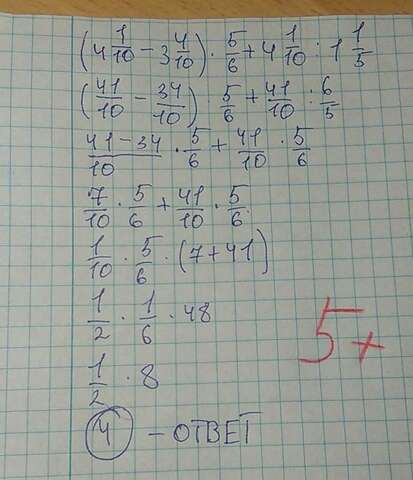 (4 1/10 - 3 4/10) · 5/6 + 4 1/10 : 1 1/5
(41/10 - 34/10) · 5/6 + 41/10 : 6/5
(41-34)/10 · 5/6 + 41/10 · 5/6
7/10 · 5/6 + 41/10 · 5/6
1/10 · 5/6 · (7+41)
1/2 · 1/6 · 48
1/2 · 8
4 - ОТВЕТ
5+